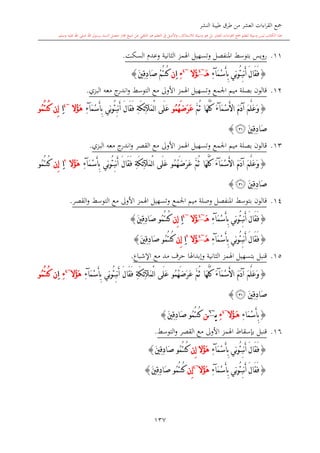 جمع القراءات العشر من طرق طيبة النشر
١١. رويس بتوسط المنفصل وتسهيل الهمز الثانية وعدم السكت.
﴿ فَقَالَ أَنۢبِـُٔونِي بِأَسْمَآءِ هَـٰٓؤُلَآءِ إِن كُنتُمْ صَادِقِينَ ﴾
١٢. قالون بصلة ميم الجمع وتسهيل الهمز الأولى مع التوسط واندرج معه البزي.
﴿ وَعَلَّمَ ءَادَمَ ٱلْأَسْمَآءَ كُلَّهَا ثُمَّ عَرَضَهُمُو عَلَى ٱلْمَلَـٰٓئِكَةِ فَقَالَ أَنۢبِـُٔونِي بِأَسْمَآءِ هَـٰٓؤُلَآ إِن كُنتُمُو
صَادِقِينَ ﴿٣١﴾ ﴾
١٣. قالون بصلة ميم الجمع وتسهيل الهمز الأولى مع القصر واندرج معه البزي.
﴿ وَعَلَّمَ ءَادَمَ ٱلْأَسْمَآءَ كُلَّهَا ثُمَّ عَرَضَهُمُو عَلَى ٱلْمَلَـٰٓئِكَةِ فَقَالَ أَنۢبِـُٔونِي بِأَسْمَآءِ هَـٰٓؤُلَا إِن كُنتُمُو
صَادِقِينَ ﴿٣١﴾ ﴾
١٤. قالون بتوسط المنفصل وصلة ميم الجمع وتسهيل الهمز الأولى مع التوسط والقصر.
﴿ فَقَالَ أَنۢبِـُٔونِي بِأَسْمَآءِ هَـٰٓؤُلَآ إِن كُنتُمُو صَادِقِينَ ﴾
﴿ فَقَالَ أَنۢبِـُٔونِي بِأَسْمَآءِ هَـٰٓؤُلَا إِن كُنتُمُو صَادِقِينَ ﴾
١٥. قنبل بتسهيل الهمز الثانية وإبدالها حرف مد مع الإشباع.
﴿ وَعَلَّمَ ءَادَمَ ٱلْأَسْمَآءَ كُلَّهَا ثُمَّ عَرَضَهُمُو عَلَى ٱلْمَلَـٰٓئِكَةِ فَقَالَ أَنۢبِـُٔونِي بِأَسْمَآءِ هَـٰٓؤُلَآءِ إِن كُنتُمُو
صَادِقِينَ ﴿٣١﴾ ﴾
﴿ بِأَسْمَآءِ هَـٰٓؤُلَآءِ ين كُنتُمُو صَادِقِينَ ﴾
١٦. قنبل بإسقاط الهمز الأولى مع القصر والتوسط.
﴿ فَقَالَ أَنۢبِـُٔونِي بِأَسْمَآءِ هَـٰٓؤُلَا إِن كُنتُمُو صَادِقِينَ ﴾
﴿ فَقَالَ أَنۢبِـُٔونِي بِأَسْمَآءِ هَـٰٓؤُلَآ إِن كُنتُمُو صَادِقِينَ ﴾
١٣٧